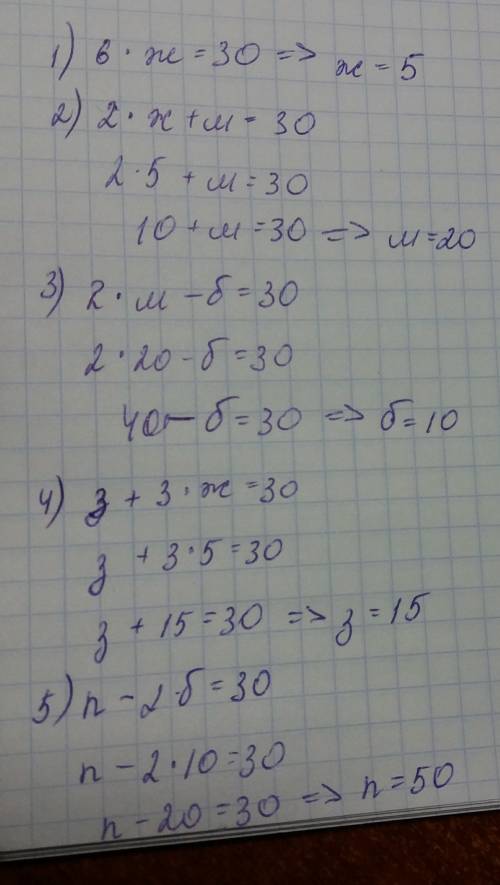 1) 6 · ж = 30 => ж = 5
2) 2 · ж + м = 30
2 · 5 + м = 30
10 + м = 30 => м = 20
3) 2 · м - б = 30
2 · 20 - б = 30
40 - б = 30 => б = 10
4) з + 3 · ж = 30
з + 3 · 5 = 30
з + 15 = 30 => з = 15
5) п - 2 · б = 30
п - 2 · 10 = 30
п - 20 = 30 => п = 50